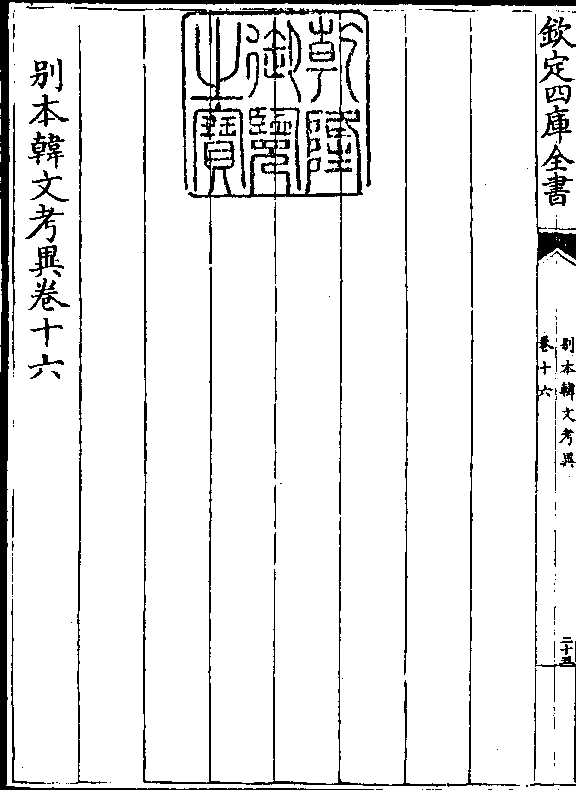 欽定四庫全書
别本韓文考異
卷十六
二十五
乾隆
御覽
之寶
别本韓文考異卷十六